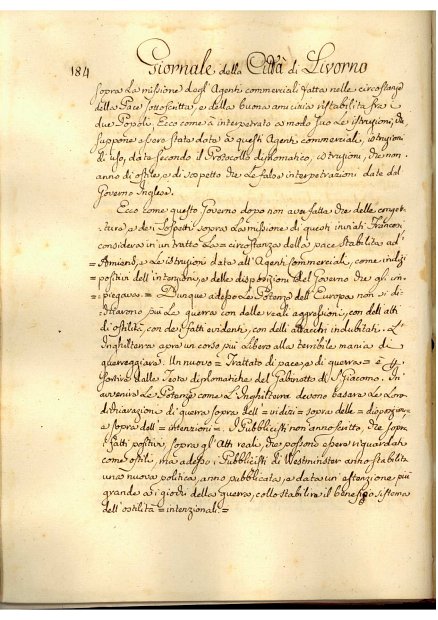 184 Giornale della Città di Livorno
sopra La missione degl' Agenti commerciali fatta nelle circostanze
della Pace sottoscritta, e della buona amicizia ristabilita fra i
due Popoli. Ecco come à interpetrato a modo suo Le istruzioni, che
suppone essere state date a questi Agenti commerciali, istruzioni
di uso, date secondo il Protocollo diplomatico, istruzioni, che non
anno di ostile, e di sospetto che Le false interpetrazioni date dal
Governo Inglese.
Ecco come questo Governo dopo non aver fatta che delle conget-
ture, e dei sospetti sopra La missione di questi inviati Francesi
considera in un tratto La circostanza della pace stabilita ad
= Amiens, e Le istruzioni date all' Agenti commerciali, come indiz-
= positivi dell' intenzioni, e delle disposizioni del Governo che gl' im-
= piegava. = Dunque adesso Le Potenze dell' Europa non si di-
chiareranno più La guerra con delle reali aggressioni, con dell' atti
di ostilità, con dei fatti evidenti, con delli attacchi indubitati. L'
Inghilterra apre un corso più Libero alla terribile mania di
guerreggiare. Un nuovo = Trattato di pace, e di guerra = è
sortito dalle Teste diplomatiche del Gabinetto di S. Giacomo. In
avvenire Le Potenze come L' Inghilterra devono basare Le Loro
dichiarazioni di guerra sopra dell' = indizi = sopra delle = disposizioni =
e sopra dell' = intenzioni =. I Pubblicisti non anno scritto, che sopra
fatti positivi, sopra gl' Atti reali, che possono essere risguardati
come ostili, ma adesso i Pubblicisti di Westminster anno stabilita
una nuova politica, anno pubblicata, e data un' estenzione più
grande a i giochi della guerra, collo stabilire il benefico sistema
dell' ostilità = intenzionali. =